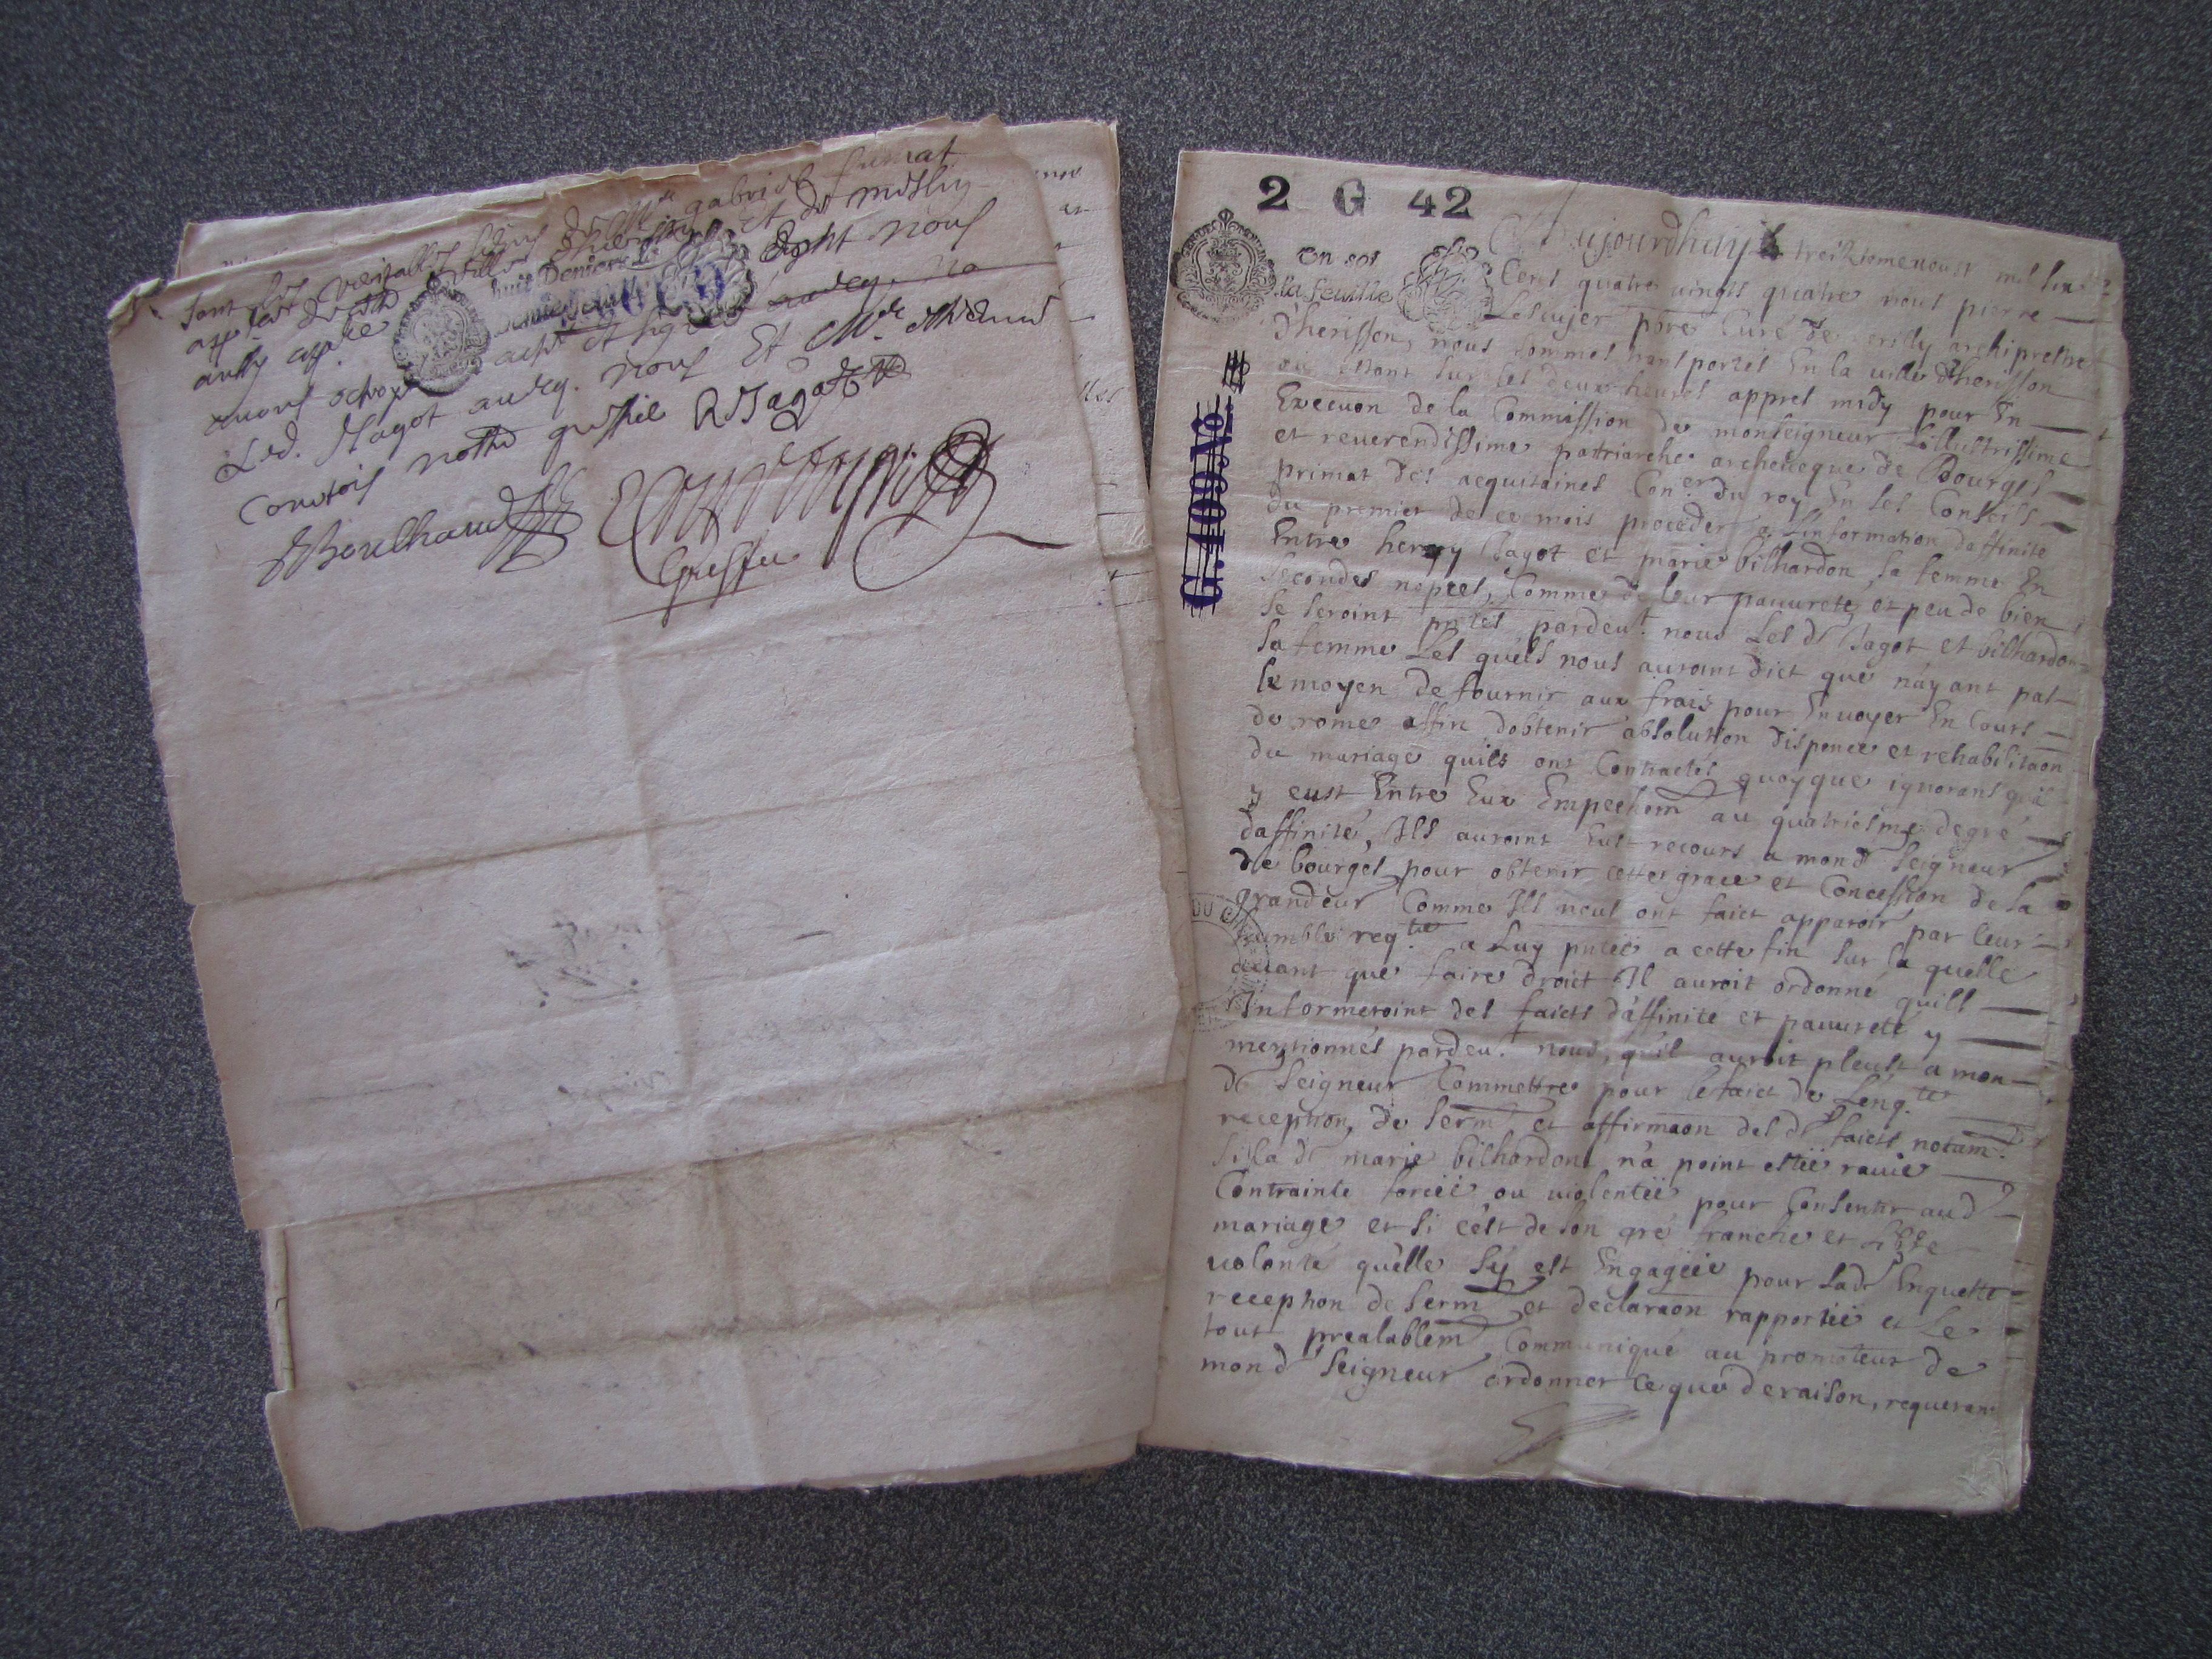 sont les veritables
gabriel
huit Deniers
et nous
Led. Jagot avecq. nous Et Me
Contois notre greffié RJagot
Bouilhaud
Greffier
2 G 42
G. 109. No.
Un sol
la feuille
Aujourdhuy treiziemeaoust mil six
Cent quatre vingts quatre nous pierre
Lescuyer pbre Curé de archiprestre
d'herisson, nous sommes transportés En la ville d'herisson
ou estant sur les deux heures appres midy pour En
Execuon de la Commission de monseigneur Lillustrissime
et reverendissime patriarche archeveque de Bourges
primat des acquitaines Coner du roy En ses Conseils
du premier de ce mois proceder a Linformation daffinité
Entre henry Jagot et marie bilhardon sa femme En
secondes nopces, Comme de leur pauvreté et peu de bien
se seroint pntés pardevt. nous Les ds Jagot et bilhardon
sa femme Les quels nous auroint dict que n'ayant pas
le moyen de fournir aux frais pour Envoyer En Cours
de rome affin dobtenir absolution dispence et rehabilitaon
du mariage quils ont Contractés quoyque ignorans quil
y eust Entre Eux Empechemt au quatriesme degré
daffinité, Ils auroint Eust recours a mond Seigneur
de bourges pour obtenir cette grace et Concession de sa
grandeur Comme Ils nous ont faict apparoir par leur
humble reqte a Luy pntée a cette fin sur la quelle
avant que faire droict Il auroit ordonné quils
Informeroint des faicts d'affinité et pauvreté y
mentionnés pardevt. nous, qu'il auroit pleust a mon
d Seigneur Commettre pour le faict de Lenqte
reception, de sermt et affirmaon des ds faicts notamt.
si la de marie bilhardon n'a point estée ravie
Contrainte forcée ou violentée pour Consentir aud
mariage et si c'est de son gré franche et Libre
volonté qu'elle s'y est Engagée pour Lade Enqueste
reception de sermt et declaraon rapportée et Le
tout prealablemt Communiqué au promoteur de
mond Seigneur ordonner ce que de raison, requerant